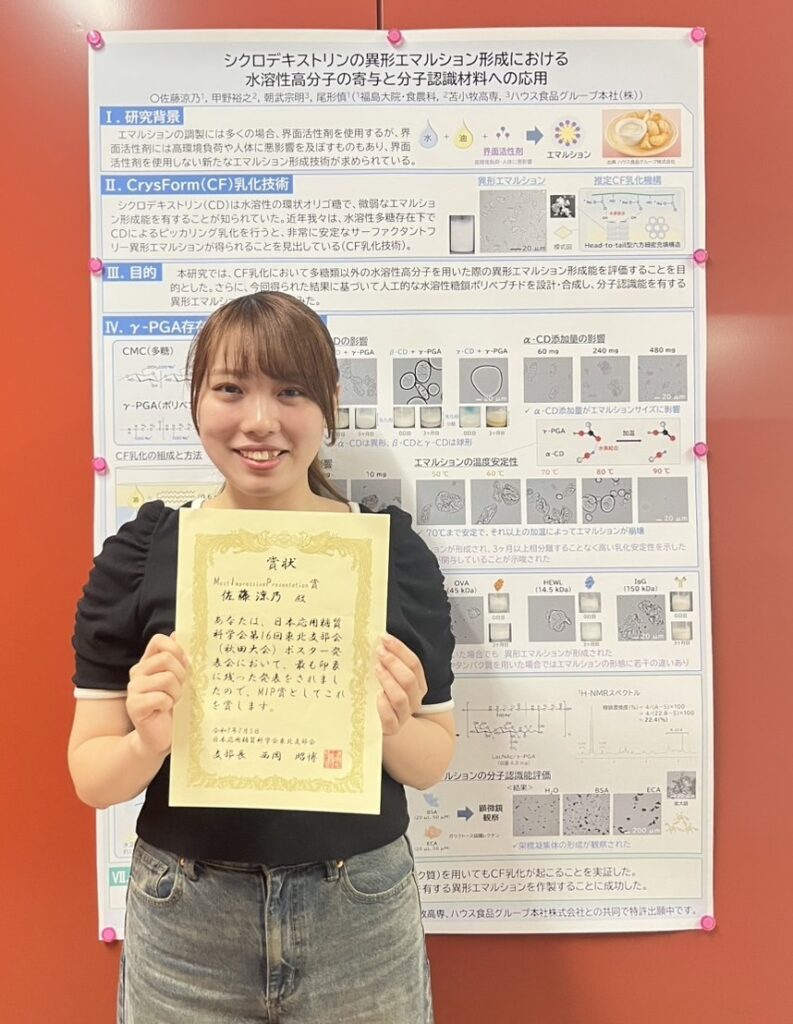 シクロデキストリンの異形エマルション形成における
水溶性高分子の寄与と分子認識材料への応用
〇佐藤涼乃¹, 甲野裕之², 朝武宗明³, 尾形慎¹(¹福島大院・食農科, ²苫小牧高専, ³ハウス食品グループ本社(株))
Ⅰ. 研究背景
エマルションの調製には多くの場合、界面活性剤を使用するが、界
面活性剤には高環境負荷や人体に悪影響を及ぼすものもあり、界面
活性剤を使用しない新たなエマルション形成技術が求められている。
水 + 油 + 界面活性剤
エマルション
出典 ハウス食品グループ株式会社
Ⅱ. CrysForm(CF)乳化技術
シクロデキストリン(CD)は水溶性の環状オリゴ糖で、微弱なエマルショ
ン形成能を有することが知られていた。近年我々は、水溶性多糖存在下で
CDによるピッカリング乳化を行うと、非常に安定なサーファクタントフ
リー異形エマルションが得られることを見出している(CF乳化技術)。
異形エマルション
20 μm
模式図
推定CF乳化機構
Head-to-tail型六方細密充填構造
Ⅲ. 目的
本研究では、CF乳化において多糖類以外の水溶性高分子を用いた際の異形エマルション形成能を評価することを目
的とした。さらに、今回得られた結果に基づいて人工的な水溶性糖鎖ポリペプチドを設計・合成し、分子認識能を有する
異形エマルシ
みた。
Ⅳ. γ-PGA存在
CMC(多糖)
γ-PGA(ポリペプ
CF乳化の組成と方法
Dの影響
D + γ-PGA
β-CD + γ-PGA
γ-CD + γ-PGA
20 μm
0日目 3ヶ月目
0日目 3ヶ月目
α-CDは異形、β-CDとγ-CDは球形
α-CD添加量の影響
60 mg 240 mg 480 mg
20 μm
✓ α-CD添加量がエマルションサイズに影響
γ-PGA
α-CD
水素結合
加温
影響
10 mg
エマルションの温度安定性
50 ℃ 60 ℃ 70 ℃ 80 ℃ 90 ℃
20 μm
✓ 70℃まで安定で、それ以上の加温によってエマルションが崩壊
ションが形成され、3ヶ月以上相分離することなく高い乳化安定性を示した
関与していることが示唆された
OVA
(45 kDa)
HEWL
(14.5 kDa)
IgG
(150 kDa)
20 μm
いた場合でも 異形エマルションが形成された
タンパク質を用いた場合ではエマルションの形態に若干の違いあり
¹H-NMRスペクトル
= 4/(A-5)×100
= 4/(22.8-5)×100
= 22.4(%)
LacNAc/γ-PGA
ルションの分子認識能評価
BSA
ECA
顕微鏡
観察
<結果>
H₂O BSA ECA
200 μm
拡大図
✓架橋凝集体の形成が観察された
Ⅶ
ク質)を用いてもCF乳化が起こることを実証した。
有する異形エマルションを作製することに成功した。
牧高専、ハウス食品グループ本社株式会社との共同で特許出願中です。
賞状
Most Impression Presentation賞
佐藤涼乃 殿
あなたは、日本応用糖質
科学会第16回東北支部会
(秋田大会)ポスター発
表会において、最も印象
に残った発表をされまし
たので、MIP賞としてこれ
を賞します。
令和7年7月5日
日本応用糖質科学会東北支部会
支部長 西岡 昭博